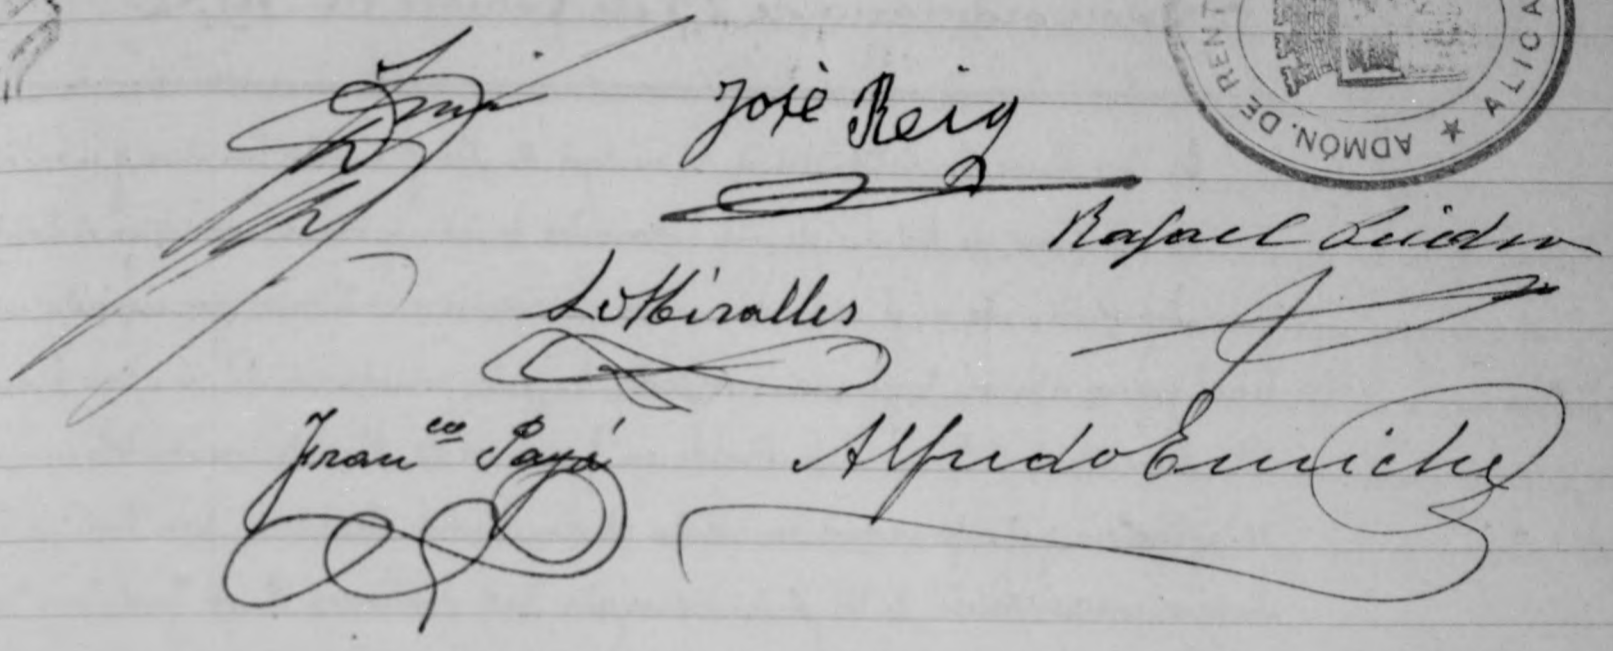 José Reig
ADMÓN. DE RENT
ALICA
Rafael
L. Miralles
Fran.co Payá
Alfredo